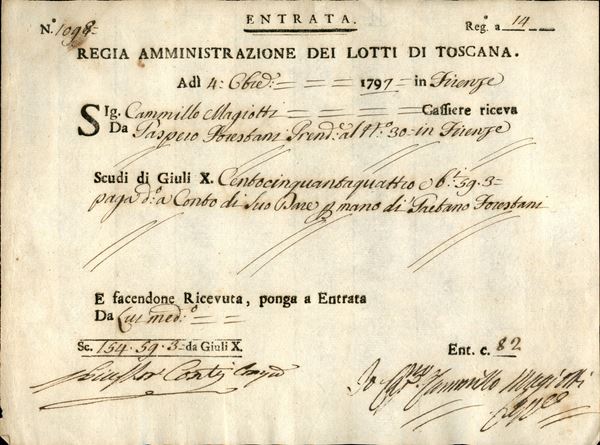 ENTRATA.
N.º 1098= Reg.º a 14
REGIA AMMINISTRAZIONE DEI LOTTI DI TOSCANA.
Adì 4: = = = 1797 = in Firenze
SIg. Cammillo Magiotti = = = = Cassiere riceva
Da Prend.e al N.º 30 = in Firenze
Scudi di Giuli X. Centocinquantaquattro e 59.3=
paga d.º a Conto di suo Dare p mano di Gaetano
E facendone Ricevuta, ponga a Entrata
Da Lui med.º = =
Sc. 154.59.3= da Giuli X. Ent. c. 82
Conti
Io Cammillo Magiotti